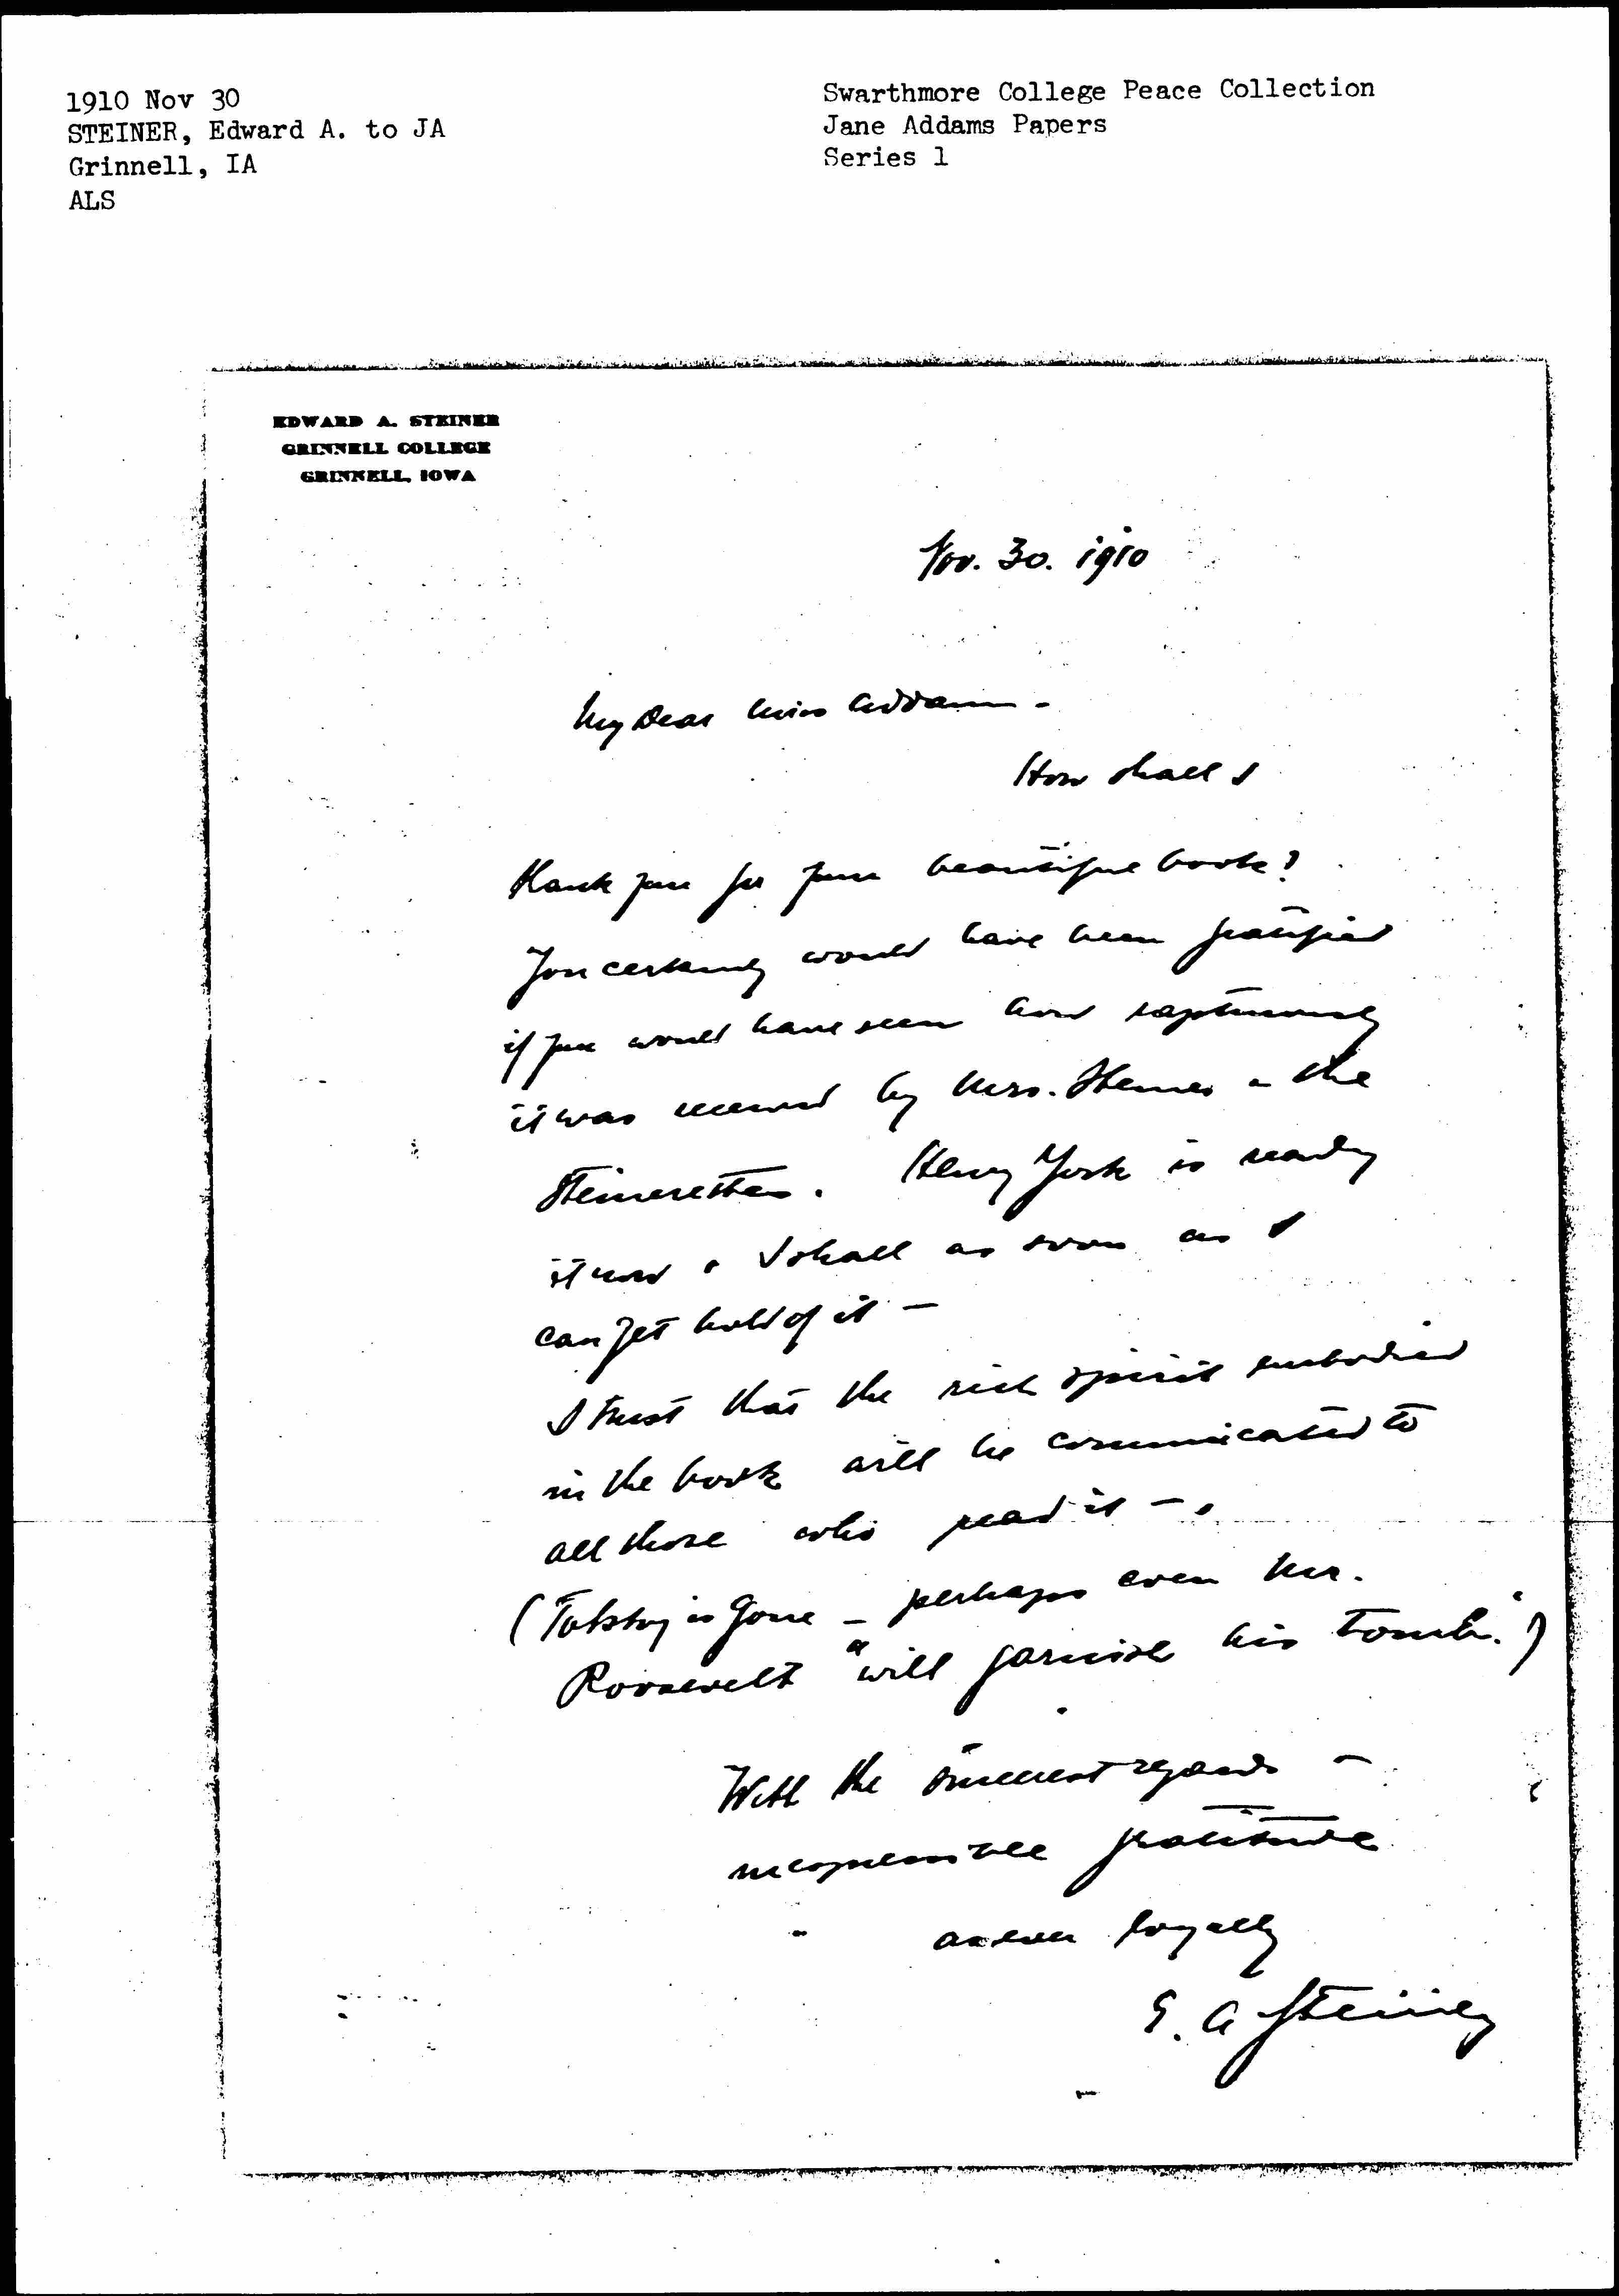 1910 Nov 30
STEINER, Edward A. to JA
Grinnell, IA
ALS
Swarthmore College Peace Collection
Jane Addams Papers
Series 1
EDWARD A. STEINER
GRINNELL COLLEGE
GRINNELL, IOWA
Nov. 30. 1910
My Dear Miss Addams -
How shall I
thank you for your beautiful book?
You certainly would have been gratified
if you would have seen how rapturously
it was received by Mrs. Steiner & the
Steinerettes. Henry York is reading
it now & I shall as soon as I
can get hold of it —
I trust that the rich spirit embodied
in the book will be communicated to
all those who read it —.
(Tolstoy is gone — perhaps even Mr.
Roosevelt "will garnish his tomb.")
With the sincerest regards —
inexpressible gratitude
as ever loyally
E. A. Steiner